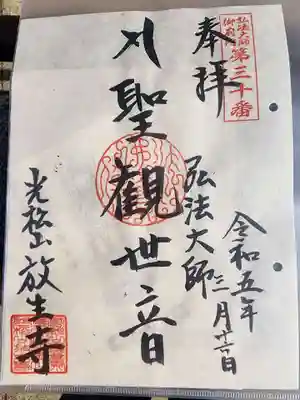 弘法大師
御府内
第三十番
奉拝
弘法大師
令和五年
三月廿六日
聖觀世音
光松山放生寺